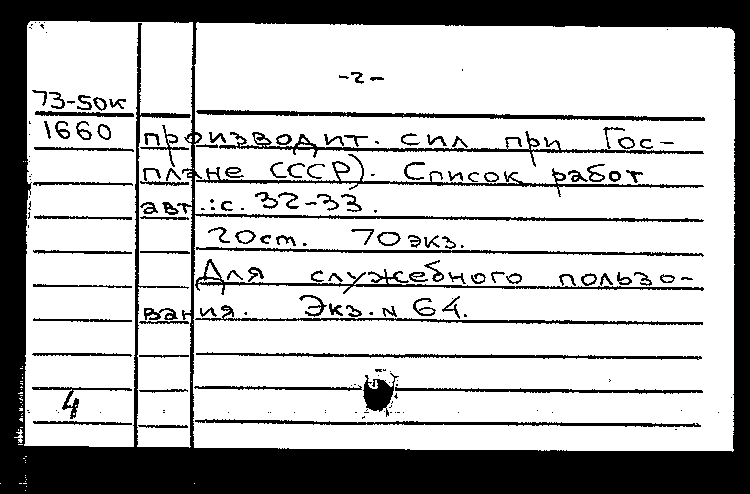 -2-
73-50к
1660 производит. сил при Гос-
плане СССР). Список работ
авт.: с. 32-33.
20см. 70экз.
Для служебного пользо-
вания. Экз. N 64.
4